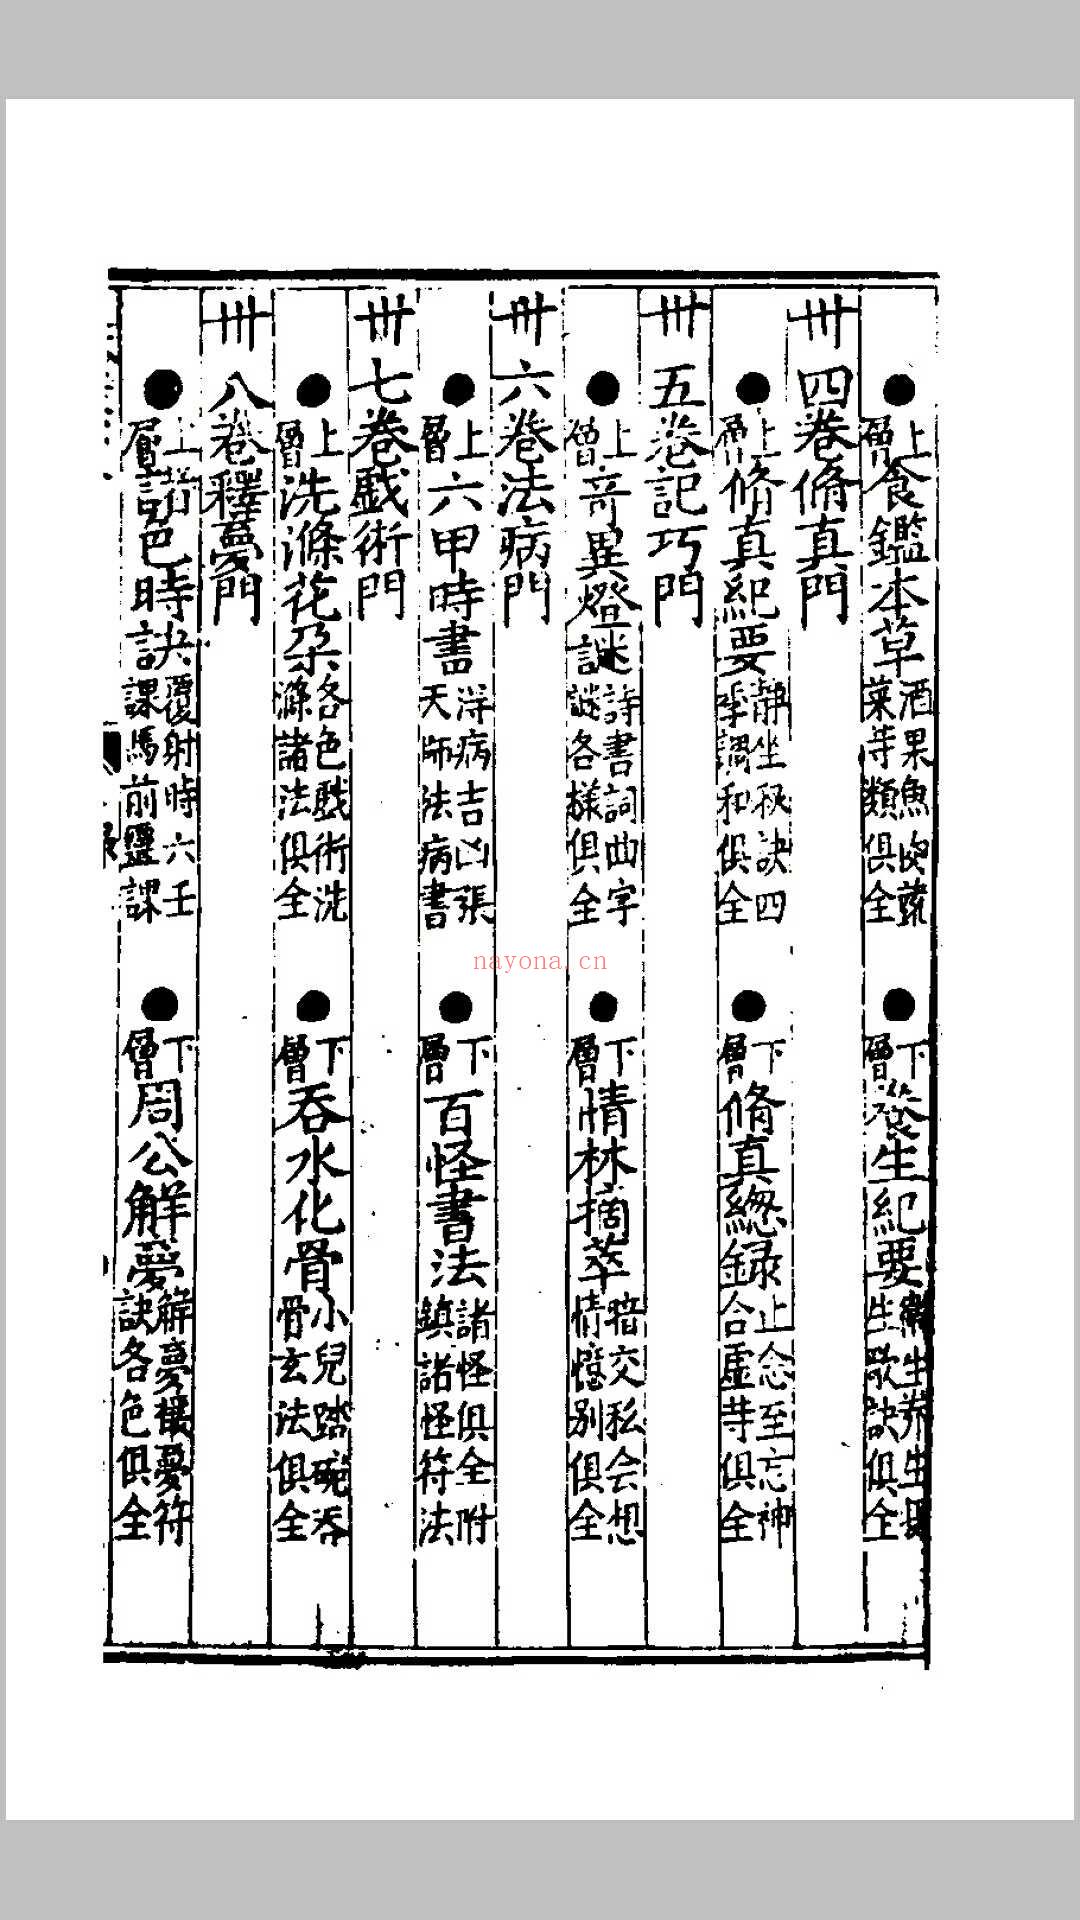 ●上層食鑑本草酒果魚肉蔬菜等類俱全 ●下層養生紀要衛生養生歌訣俱全
卅四卷脩真門
●上層脩真紀要靜坐秘訣四季調和俱全 ●下層脩真總録止念至忘神合虛等俱全
卅五卷記巧門
●上層竒異燈謎詩書詞曲字謎各樣俱全 ●下層情林摘萃暗交私会想情憶别俱全
卅六卷法病門
●上層六甲時書浮病吉凶張天师法病書 ●下層百怪書法諸怪俱全附鎮諸怪符法
卅七卷戲術門
●上層洗滌花朶各色戲術洗滌諸法俱全 ●下層吞水化骨小兒踏碗吞骨玄法俱全
卅八卷釋夢門
●上層諸色時訣覆射時六壬課馬前靈課 ●下層周公解夢解夢禳夢符訣各色俱全
nayona.cn